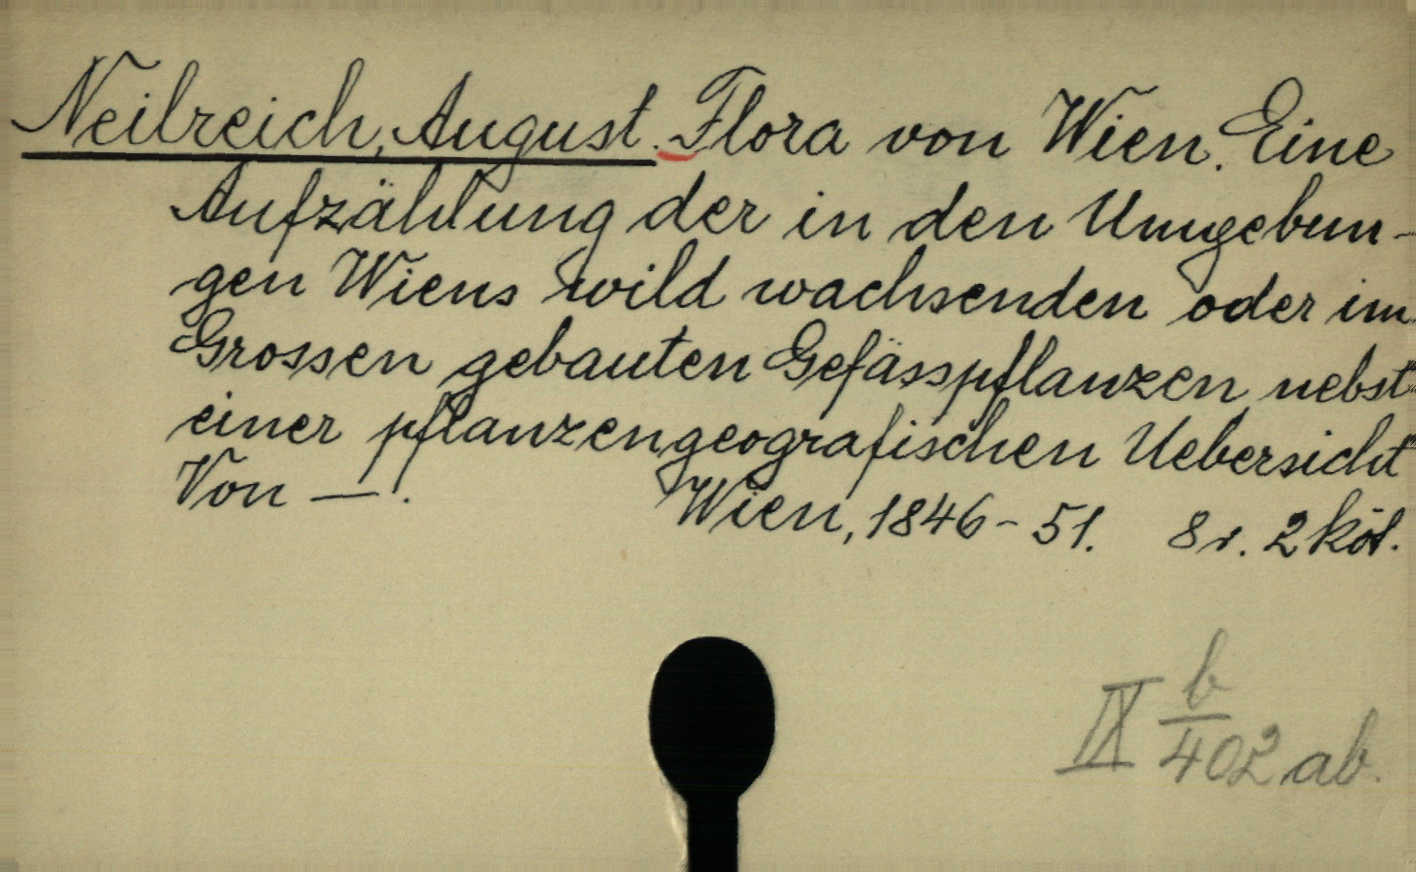 Neilreich, August. Flora von Wien. Eine
Aufzählung der in den Umgebun-
gen Wiens wild wachsenden oder im
Grossen gebauten Gefässpflanzen nebst
einer pflanzengeografischen Uebersicht
Von —.  Wien, 1846-51.  8r. 2 köt.
IX b/402 ab.